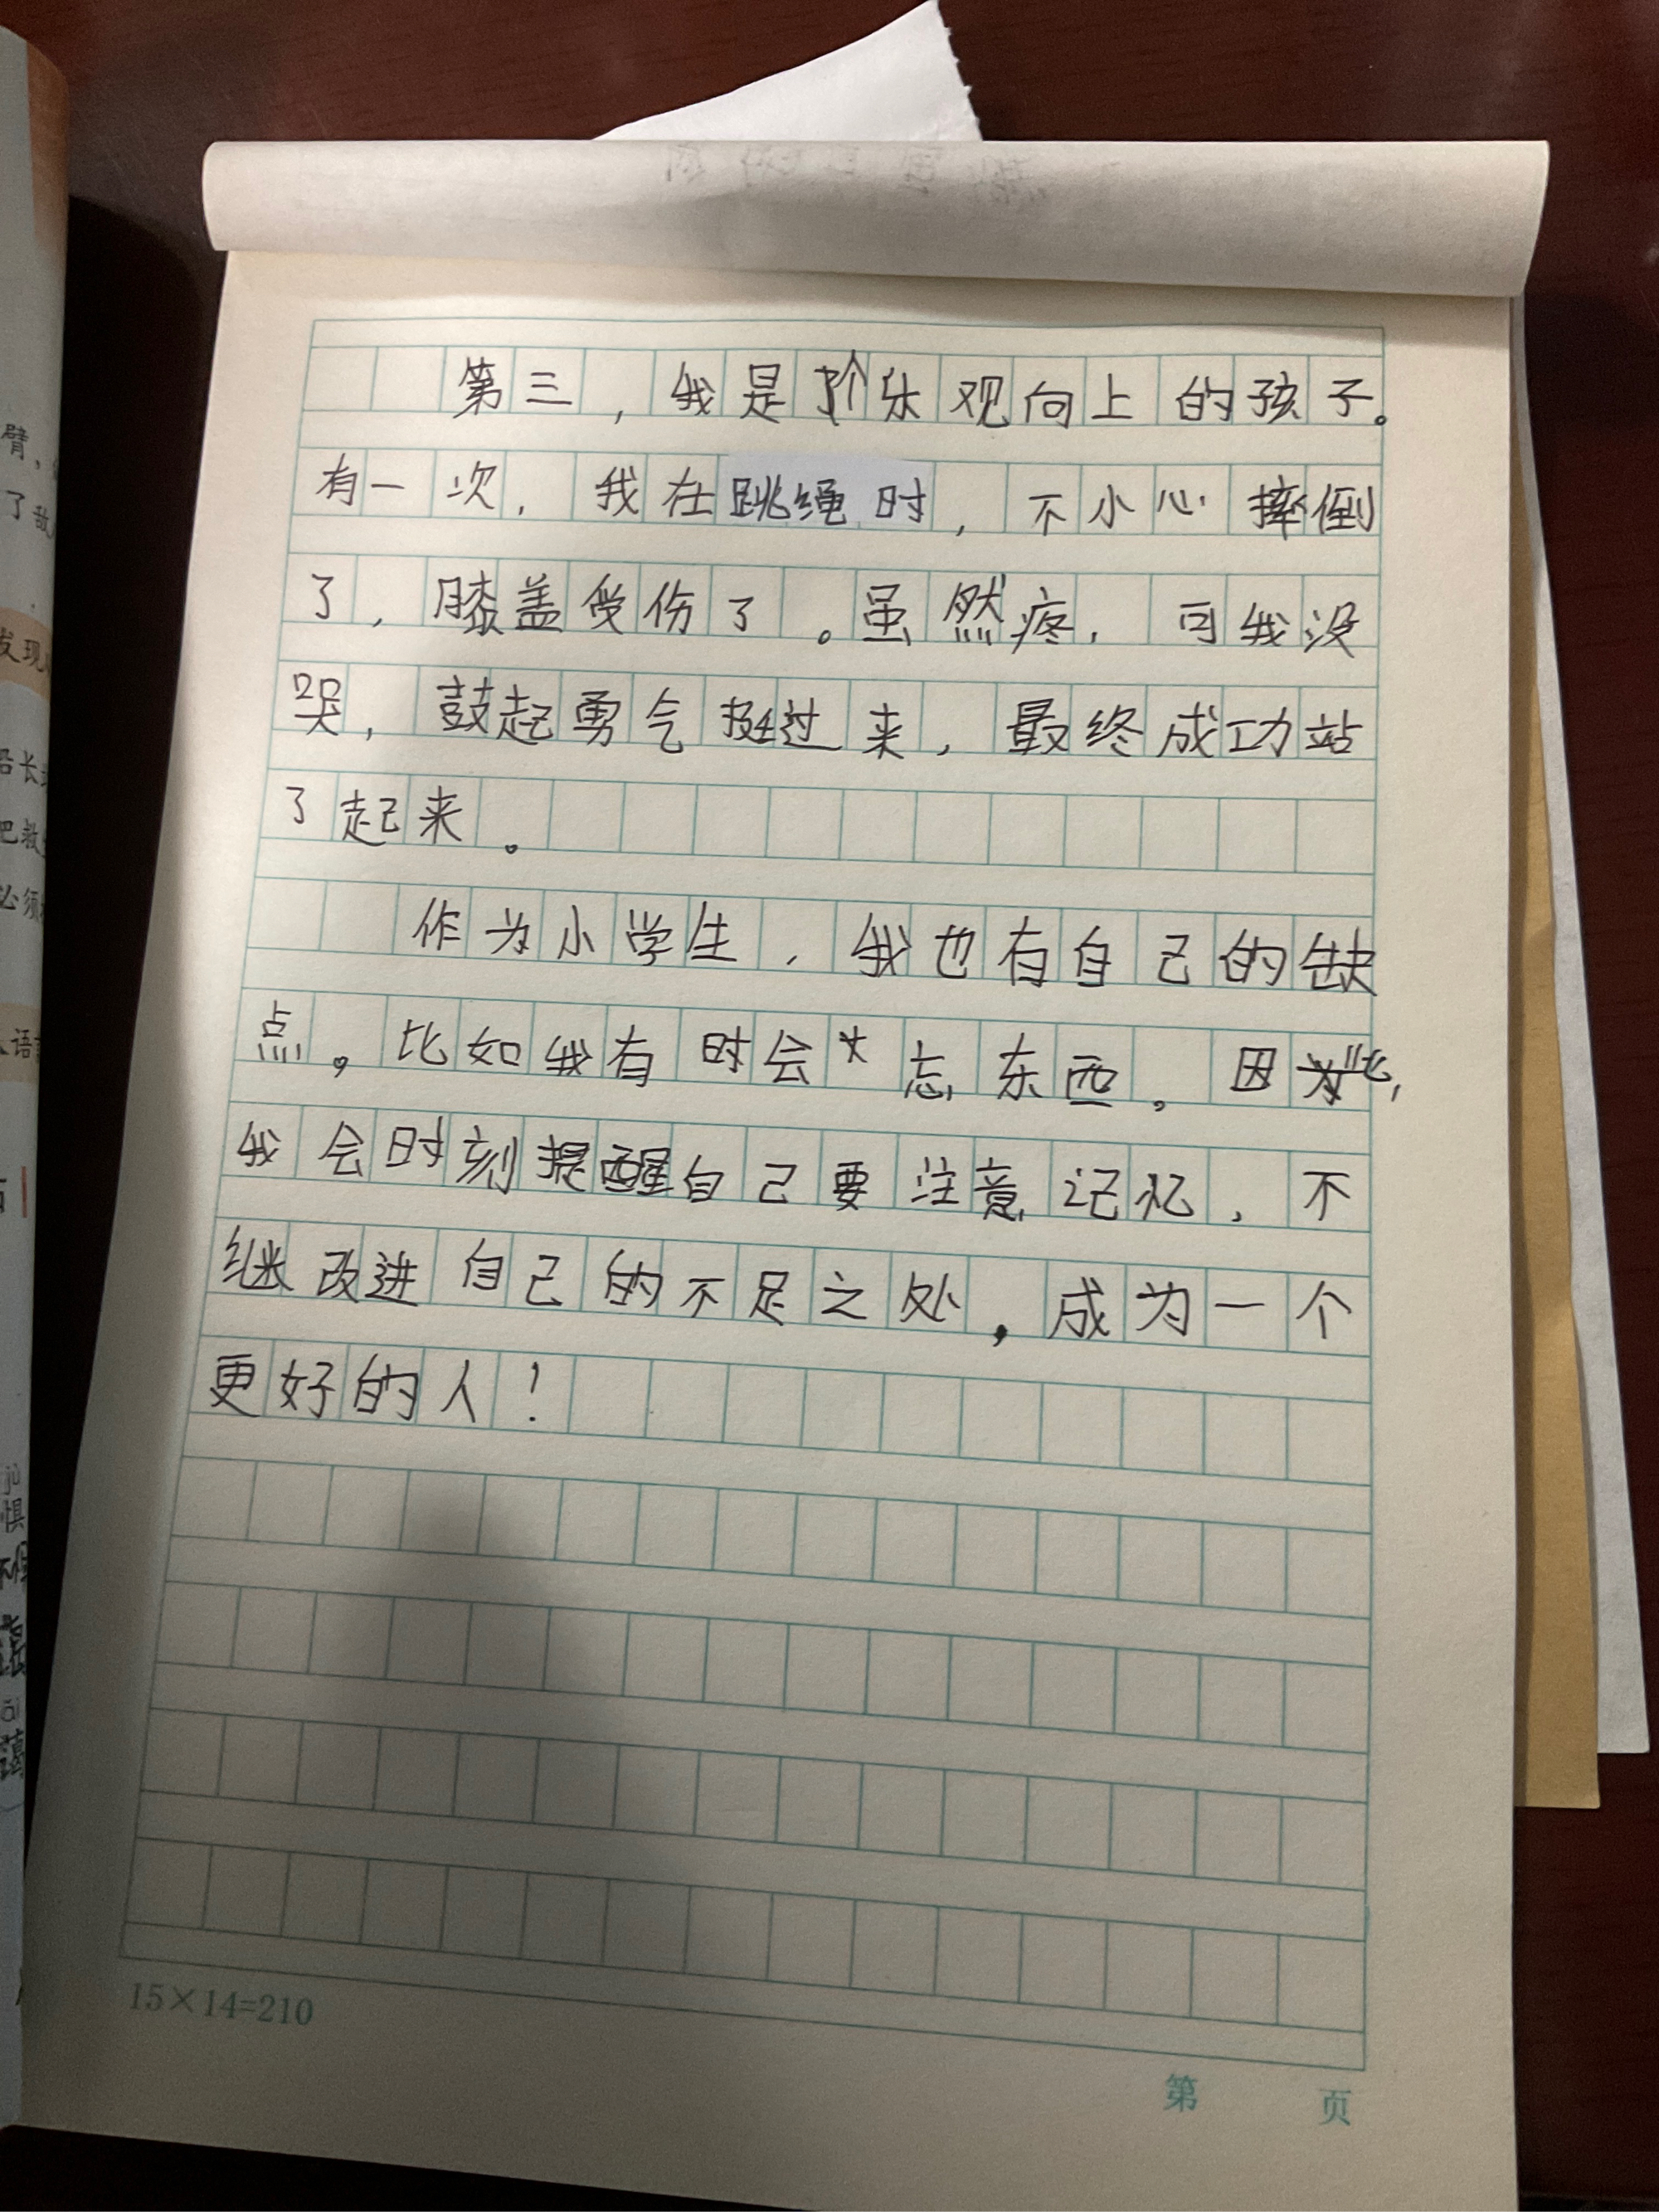 第三，我是个乐观向上的孩子。
有一次，我在跳绳时，不小心摔倒
了，膝盖受伤了。虽然疼，可我没
哭，鼓起勇气挺过来，最终成功站
了起来。
作为小学生，我也有自己的缺
点。比如我有时会忘东西。因此，
我会时刻提醒自己要注意记忆，不
继改进自己的不足之处，成为一个
更好的人！
15×14=210
第 页
臂，
了敌
发现
沿长
把救
必须
语
惧